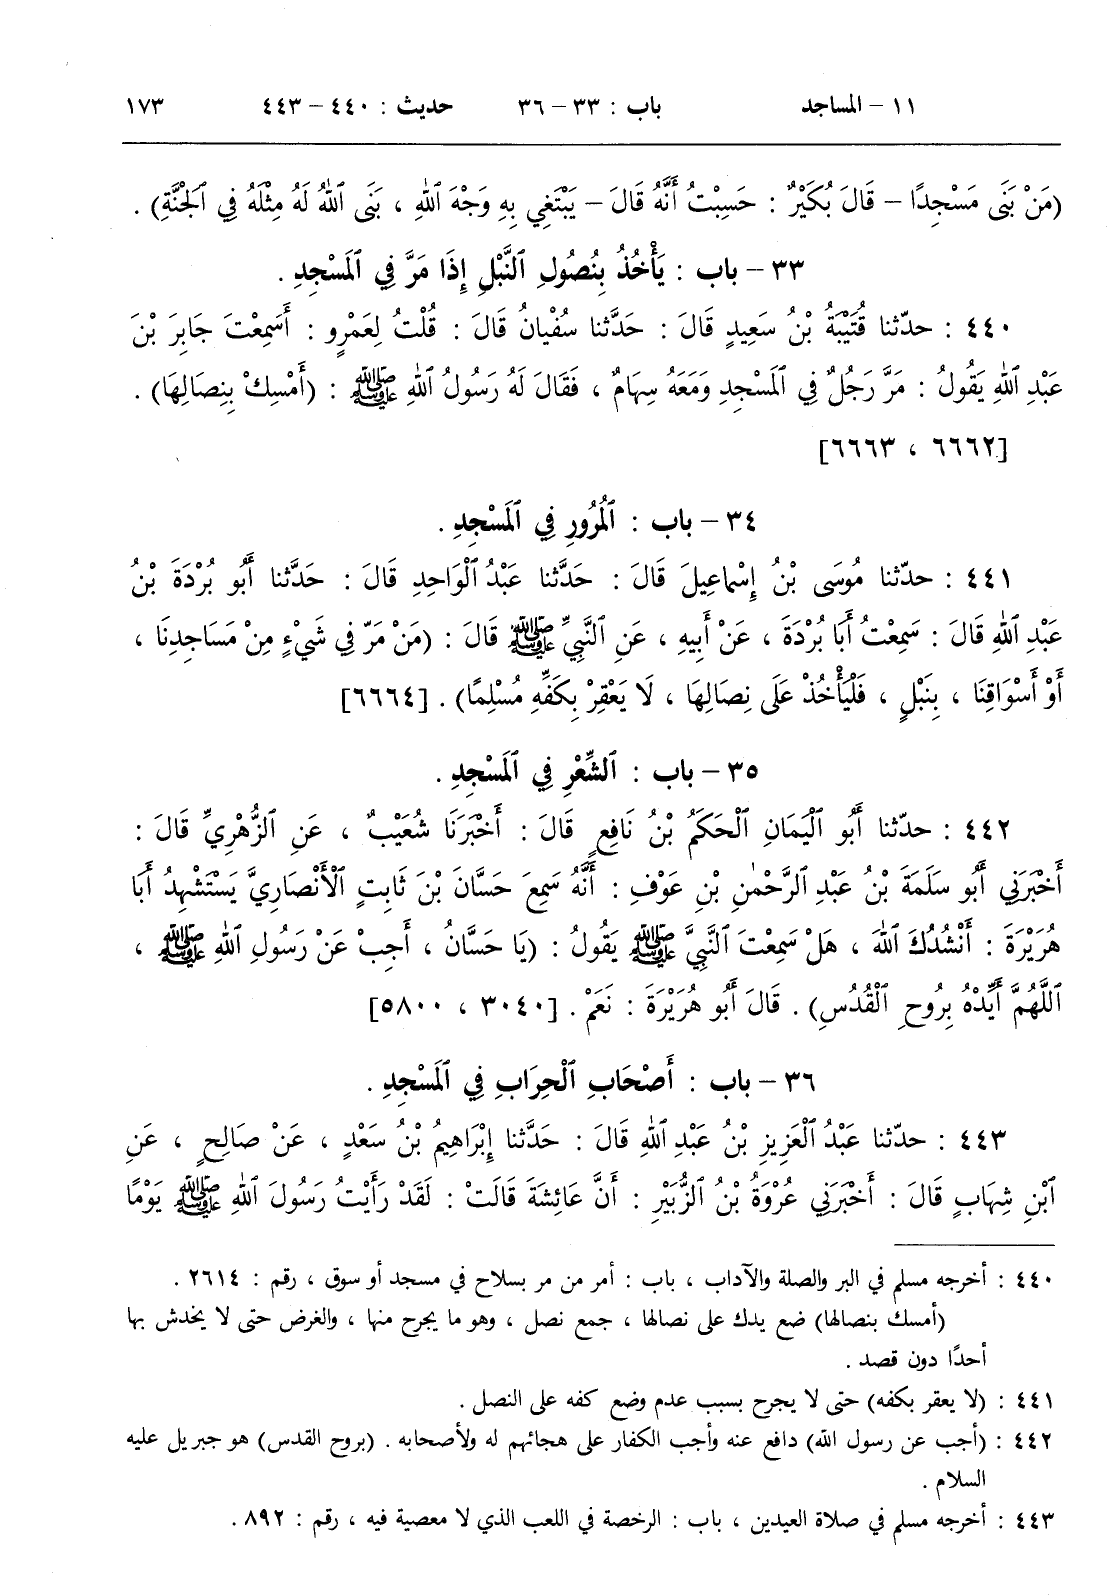 ١١ - المساجد باب : ٣٣ - ٣٦ حديث : ٤٤٠ - ٤٤٣ ١٧٣
(مَنْ بَنَى مَسْجِدًا - قَالَ بُكَيْرٌ : حَسِبْتُ أَنَّهُ قَالَ - يَبْتَغِي بِهِ وَجْهَ ٱللهِ ، بَنَى ٱللهُ لَهُ مِثْلَهُ فِي ٱلْجَنَّةِ) .
٣٣ - باب : يَأْخُذُ بِنُصُولِ ٱلنَّبْلِ إِذَا مَرَّ فِي ٱلْمَسْجِدِ .
٤٤٠ : حدّثنا قُتَيْبَةُ بْنُ سَعِيدٍ قَالَ : حَدَّثنا سُفْيانُ قَالَ : قُلْتُ لِعَمْرٍو : أَسَمِعْتَ جَابِرَ بْنَ
عَبْدِ ٱللهِ يَقُولُ : مَرَّ رَجُلٌ فِي ٱلْمَسْجِدِ وَمَعَهُ سِهَامٌ ، فَقَالَ لَهُ رَسُولُ ٱللهِ ﷺ : (أَمْسِكْ بِنِصَالِهَا) .
[٦٦٦٢ ، ٦٦٦٣]
٣٤ - باب : ٱلْمُرُورِ فِي ٱلْمَسْجِدِ .
٤٤١ : حدّثنا مُوسَى بْنُ إِسْماعِيلَ قَالَ : حَدَّثنا عَبْدُ ٱلْوَاحِدِ قَالَ : حَدَّثنا أَبُو بُرْدَةَ بْنُ
عَبْدِ ٱللهِ قَالَ : سَمِعْتُ أَبَا بُرْدَةَ ، عَنْ أَبِيهِ ، عَنِ ٱلنَّبِيِّ ﷺ قَالَ : (مَنْ مَرَّ فِي شَيْءٍ مِنْ مَسَاجِدِنَا ،
أَوْ أَسْوَاقِنَا ، بِنَبْلٍ ، فَلْيَأْخُذْ عَلَى نِصَالِهَا ، لَا يَعْقِرْ بِكَفِّهِ مُسْلِمًا) . [٦٦٦٤]
٣٥ - باب : ٱلشِّعْرِ فِي ٱلْمَسْجِدِ .
٤٤٢ : حدّثنا أَبُو ٱلْيَمَانِ ٱلْحَكَمُ بْنُ نَافِعٍ قَالَ : أَخْبَرَنَا شُعَيْبٌ ، عَنِ ٱلزُّهْرِيِّ قَالَ :
أَخْبَرَنِي أَبُو سَلَمَةَ بْنُ عَبْدِ ٱلرَّحْمٰنِ بْنِ عَوْفٍ : أَنَّهُ سَمِعَ حَسَّانَ بْنَ ثَابِتٍ ٱلْأَنْصَارِيَّ يَسْتَشْهِدُ أَبَا
هُرَيْرَةَ : أَنْشُدُكَ ٱللهَ ، هَلْ سَمِعْتَ ٱلنَّبِيَّ ﷺ يَقُولُ : (يَا حَسَّانُ ، أَجِبْ عَنْ رَسُولِ ٱللهِ ﷺ ،
ٱللَّهُمَّ أَيِّدْهُ بِرُوحِ ٱلْقُدُسِ) . قَالَ أَبُو هُرَيْرَةَ : نَعَمْ . [٣٠٤٠ ، ٥٨٠٠]
٣٦ - باب : أَصْحَابِ ٱلْحِرَابِ فِي ٱلْمَسْجِدِ .
٤٤٣ : حدّثنا عَبْدُ ٱلْعَزِيزِ بْنُ عَبْدِ ٱللهِ قَالَ : حَدَّثنا إِبْرَاهِيمُ بْنُ سَعْدٍ ، عَنْ صَالِحٍ ، عَنِ
ٱبْنِ شِهَابٍ قَالَ : أَخْبَرَنِي عُرْوَةُ بْنُ ٱلزُّبَيْرِ : أَنَّ عَائِشَةَ قَالَتْ : لَقَدْ رَأَيْتُ رَسُولَ ٱللهِ ﷺ يَوْمًا
٤٤٠ : أخرجه مسلم في البر والصلة والآداب ، باب : أمر من مر بسلاح في مسجد أو سوق ، رقم : ٢٦١٤ .
(أمسك بنصالها) ضع يدك على نصالها ، جمع نصل ، وهو ما يجرح منها ، والغرض حتى لا يخدش بها
أحدًا دون قصد .
٤٤١ : (لا يعقر بكفه) حتى لا يجرح بسبب عدم وضع كفه على النصل .
٤٤٢ : (أجب عن رسول الله) دافع عنه وأجب الكفار على هجائهم له ولأصحابه . (بروح القدس) هو جبريل عليه
السلام .
٤٤٣ : أخرجه مسلم في صلاة العيدين ، باب : الرخصة في اللعب الذي لا معصية فيه ، رقم : ٨٩٢ .